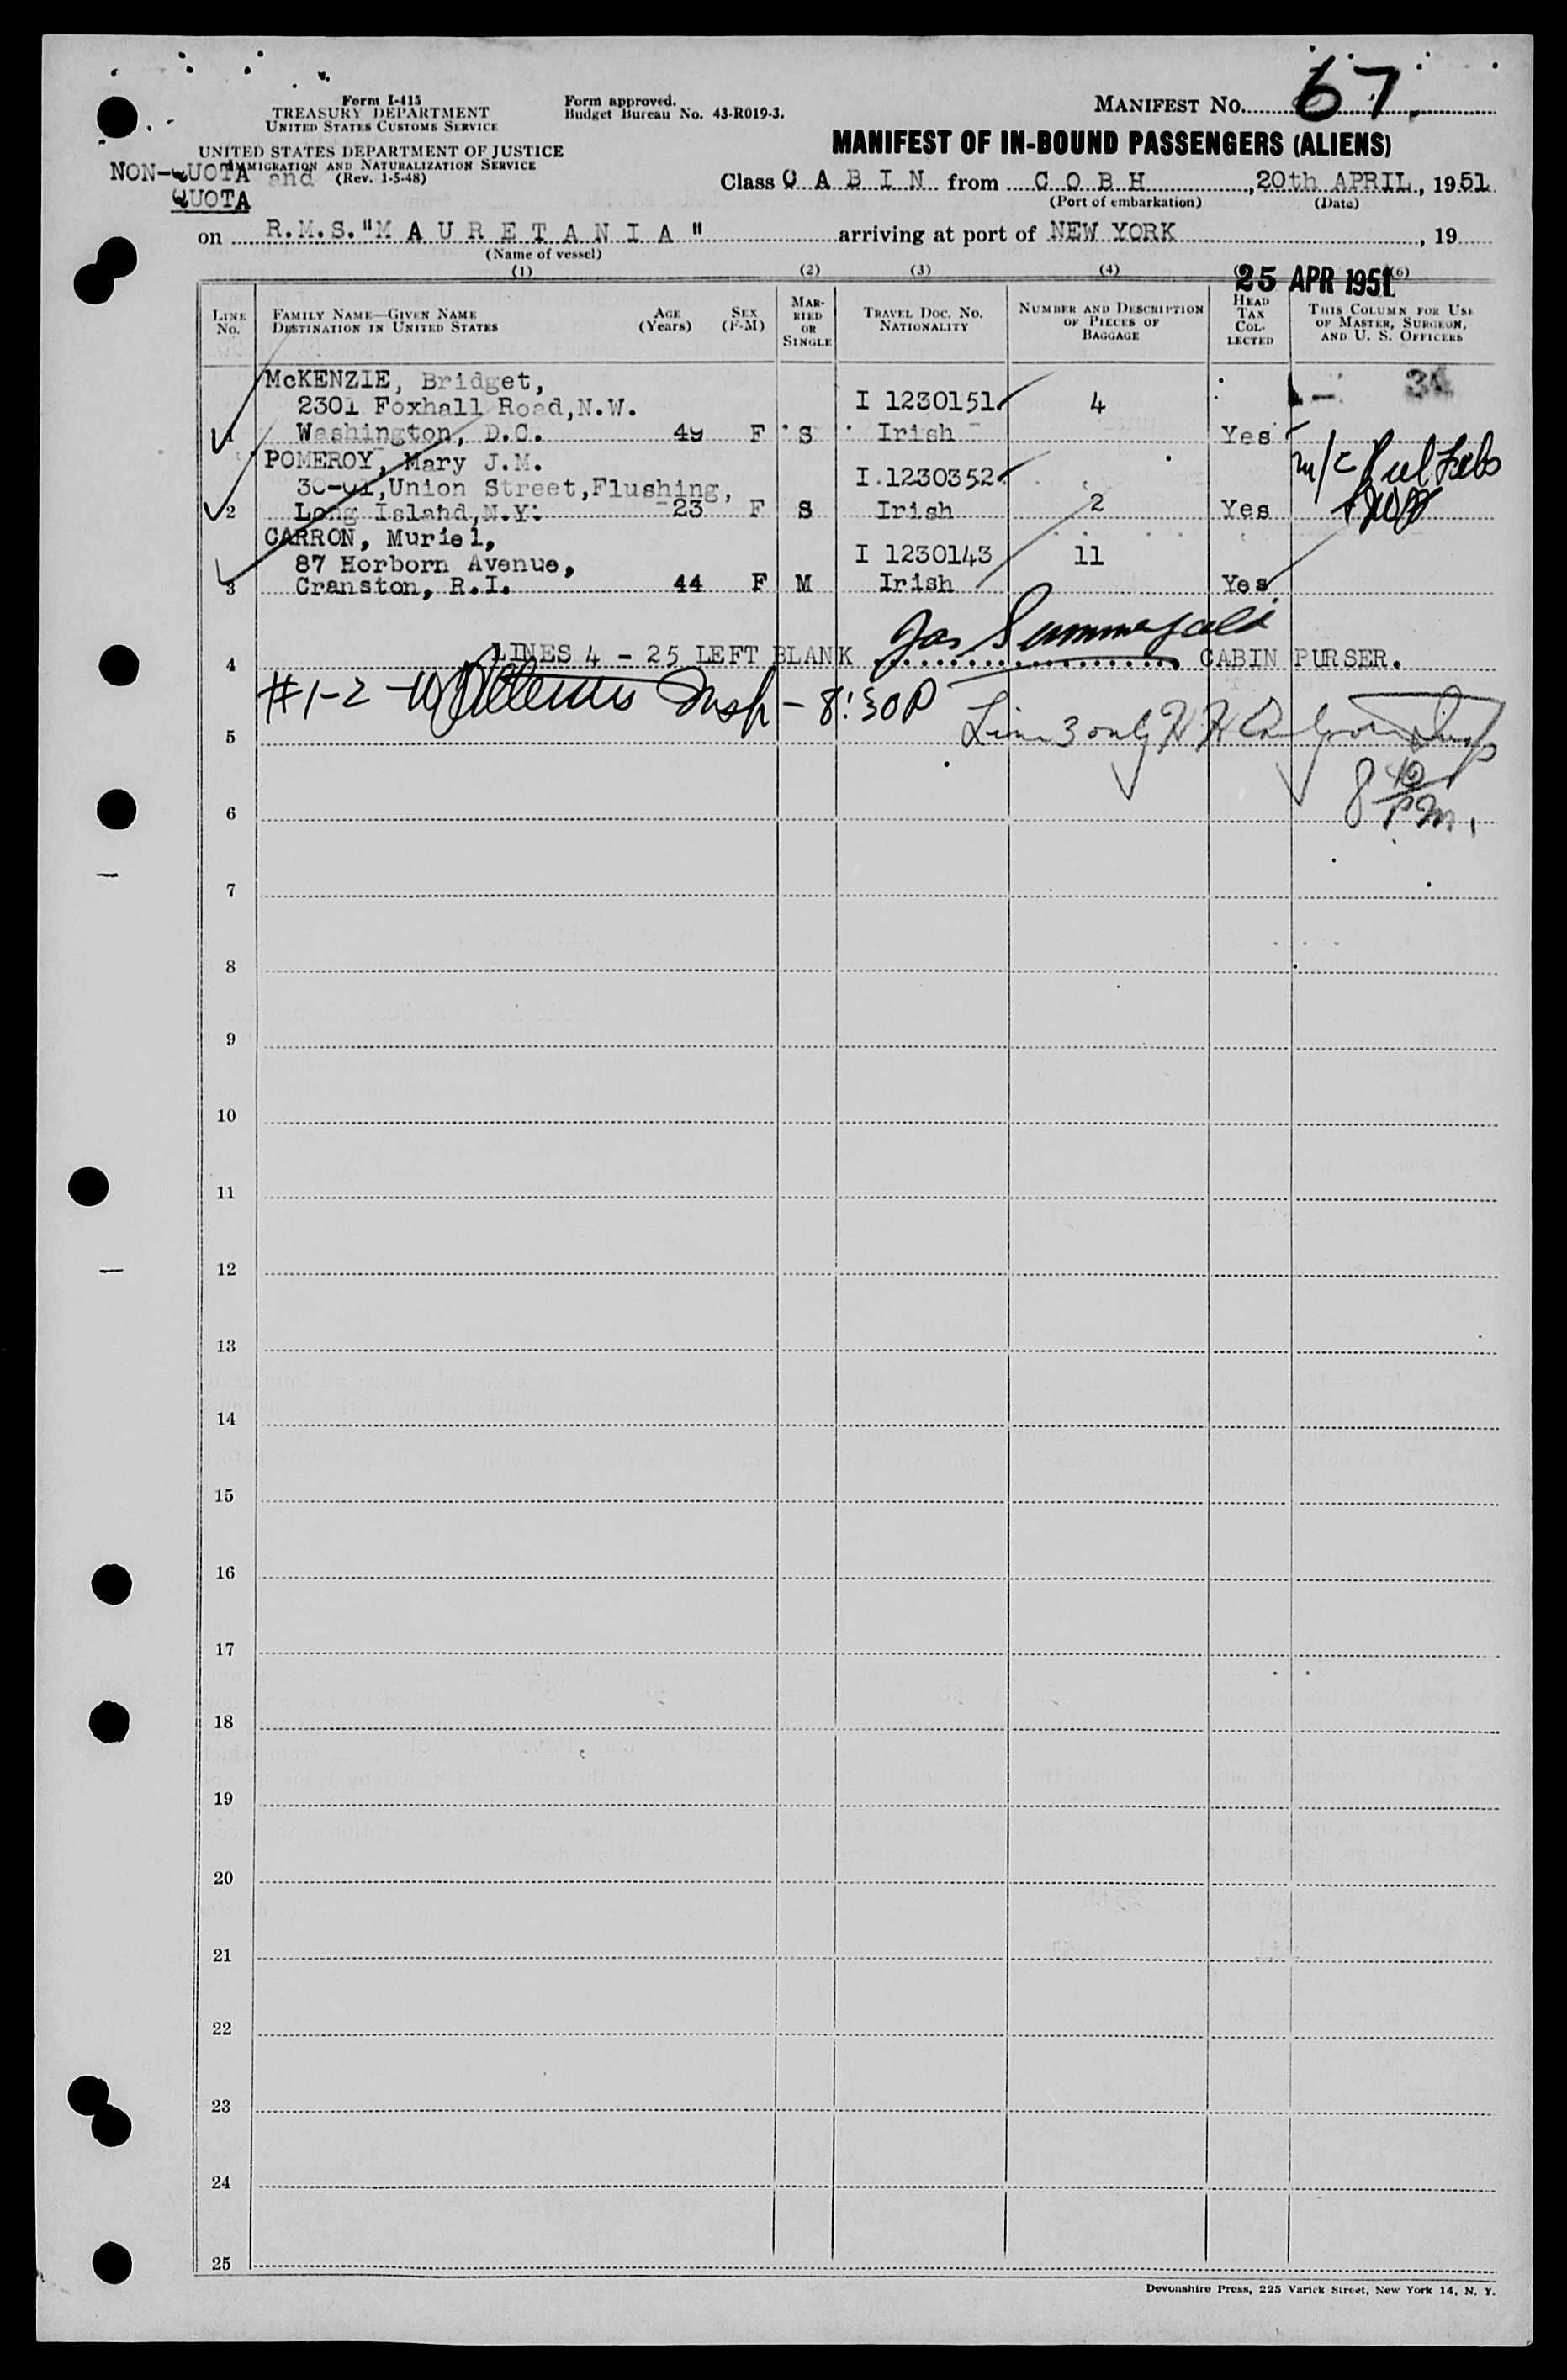 Form I-415
TREASURY DEPARTMENT
UNITED STATES CUSTOMS SERVICE
Form approved.
Budget Bureau No. 43-R019-3.
MANIFEST NO. 67
UNITED STATES DEPARTMENT OF JUSTICE
IMMIGRATION AND NATURALIZATION SERVICE
(Rev. 1-5-48)
NON-QUOTA and
QUOTA
MANIFEST OF IN-BOUND PASSENGERS (ALIENS)
Class C A B I N from C O B H, 20th APRIL, 1951
(Port of embarkation) (Date)
on R.M.S. "M A U R E T A N I A" arriving at port of NEW YORK, 19
(Name of vessel)
25 APR 1951
(1) (2) (3) (4) (6)
LINE NO. FAMILY NAME—GIVEN NAME DESTINATION IN UNITED STATES AGE (Years) SEX (F-M) MARRIED OR SINGLE TRAVEL DOC. NO. NATIONALITY NUMBER AND DESCRIPTION OF PIECES OF BAGGAGE HEAD TAX COLLECTED THIS COLUMN FOR USE OF MASTER, SURGEON, AND U. S. OFFICERS
McKENZIE, Bridget,
2301 Foxhall Road,N.W. I 1230151 4
1 Washington, D.C. 49 F S Irish Yes
POMEROY, Mary J.M.
30-01,Union Street,Flushing, I.1230352
2 Long Island,N.Y. 23 F S Irish 2 Yes
CARRON, Muriel,
87 Horborn Avenue, I 1230143 11
3 Cranston, R.I. 44 F M Irish Yes
4 LINES 4 - 25 LEFT BLANK CABIN PURSER.
#1-2 Insp - 8:30P
5 Line 3 only
8 40
PM.
6
7
8
9
10
11
12
13
14
15
16
17
18
19
20
21
22
23
24
25
Devonshire Press, 225 Varick Street, New York 14, N. Y.